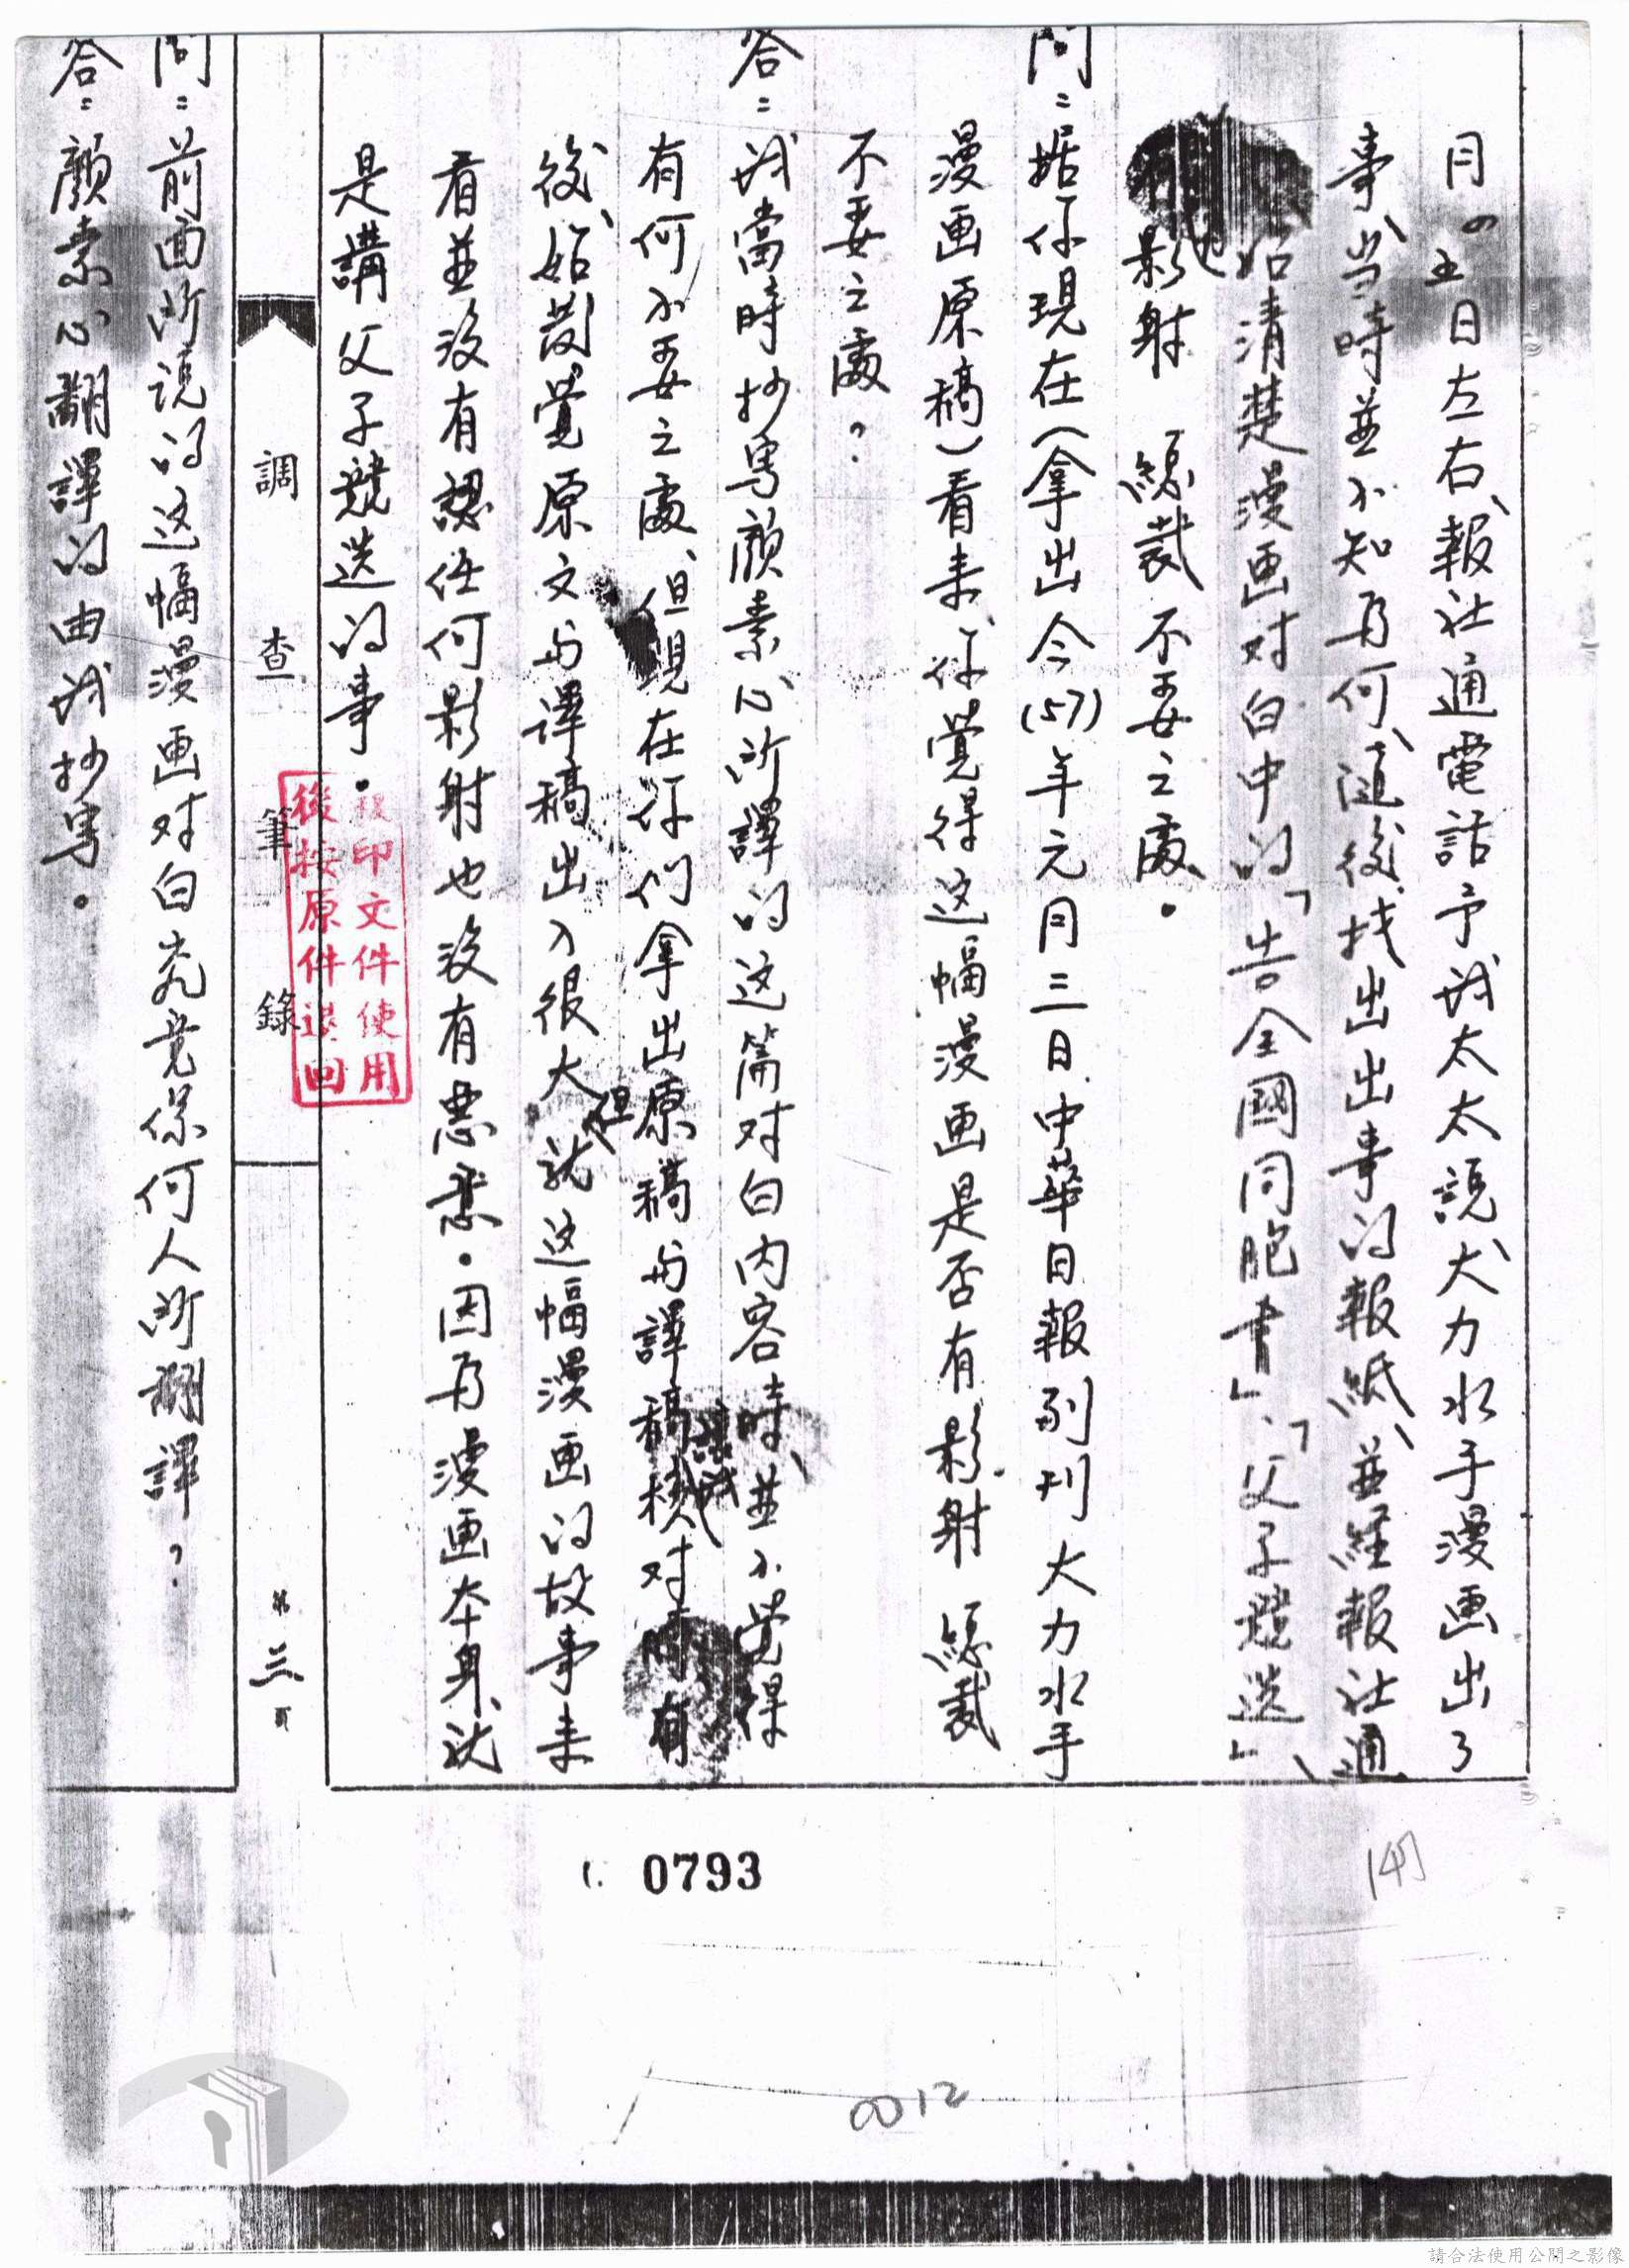 月四、五日左右、報社通電話予我太太說、大力水手漫画出了
事、当時並不知為何、隨後找出出事的報紙、並經報社通
始清楚漫画对白中的「告全國同胞書」、「父子競选」、
有影射 總裁不妥之處。
問：据你現在(拿出今(57)年元月三日中華日報副刊大力水手
漫画原稿)看来、你覺得这幅漫画是否有影射 總裁
不妥之處？
答：我當時抄寫顏素心所譯的这篇对白內容時、並不覺得
有何不妥之處、但現在你们拿出原稿与譯稿讓我核对
後、始發覺原文与譯稿出入很大、但就这幅漫画的故事来
看並沒有認任何影射也沒有惡意。因為漫画本身、就
是講父子競选的事。
調查筆錄
第三頁
問：前面所說的这幅漫画对白究竟係何人所翻譯？
答：顏素心翻譯的由我抄寫。
複印文件使用
後按原件退回
1. 0793
0012
請合法使用公開之影像